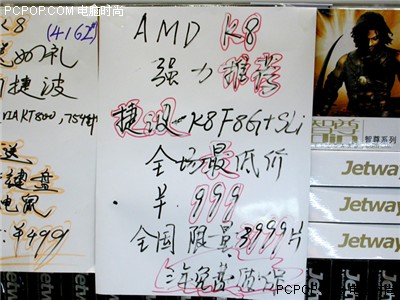 PCPOP.COM 电脑时尚
K8 (4162)
礼
捷波
VIA KT800, 754针
送
键盘
电鼠
:¥499
AMD K8
强力推荐
捷波-K8F8G+SLi
全场最低价
¥ 999
全国限量3999片
三年免费
智尊系列
Jetway
Jetway
Jetway
PCPOP.COM 电脑时尚